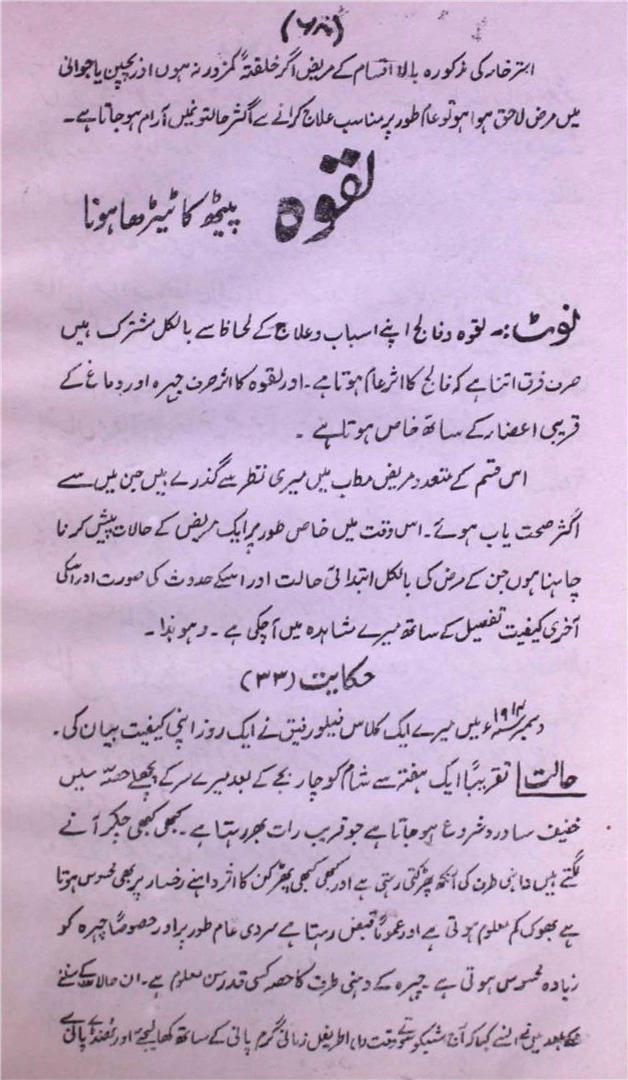 (۶۸)
استرخار کی مذکورہ بالا اقسام کے مریض اگر خلقتہً کمزور نہ ہوں اور بچپن یا جوانی
میں مرض لاحق ہوا ہو تو عام طور پر مناسب علاج کرانے سے اکثر حالتونمیں آرام ہوجاتا ہے۔
لقوہ پیٹھ کا ٹیڑھا ہونا
نوٹ:۔ لقوہ وفالج اپنے اسباب وعلاج کے لحاظ سے بالکل مشترک ہیں
صرف فرق اتنا ہے کہ فالج کا اثر عام ہوتا ہے۔ اور لقوہ کا اثر صرف چہرہ اور دماغ کے
قریبی اعضار کے ساتھ خاص ہوتا ہے۔
اس قسم کے متعدد مریض مطب میں میری نظر سے گذرے ہیں جن میں سے
اکثر صحت یاب ہوئے۔ اس وقت میں خاص طور پر ایک مریض کے حالات پیش کرنا
چاہتا ہوں جن کے مرض کی بالکل ابتدائی حالت اور اسکے حدوث کی صورت اور اسکی
آخری کیفیت تفصیل کے ساتھ میرے مشاہدہ میں آچکی ہے۔ وہو ہٰذا۔
حکایت (۳۳)
دسمبر ۱۹۱۲ء میں میرے ایک کلاس فیلو رفیق نے ایک روز اپنی کیفیت بیان کی۔
حالت تقریباً ایک ہفتہ سے شام کو چار بجے کے بعد میرے سر کے پچھلے حصہ میں
خفیف سا درد شروع ہوجاتا ہے جو قریب رات بھر رہتا ہے۔ کبھی کبھی چکر آنے
لگتے ہیں داہنی طرف کی آنکھ پھڑکتی رہتی ہے اور کبھی کبھی پھڑکن کا اثر داہنے رخسار پر بھی محسوس ہوتا
ہے بھوک کم معلوم ہوتی ہے اور عموماً قبض رہتا ہے سردی عام طور پر اور خصوصاً چہرہ کو
زیادہ محسوس ہوتی ہے۔ چہرہ کے دہنی طرف کا حصہ کسی قدر سن معلوم ہے۔ ان حالات کے سننے
کے بعد میں نے ان سے کہا کہ آج شب کو سوتے وقت اطریفل زمانی گرم پانی کے ساتھ کھا لیجئے اور ٹھنڈے پانی